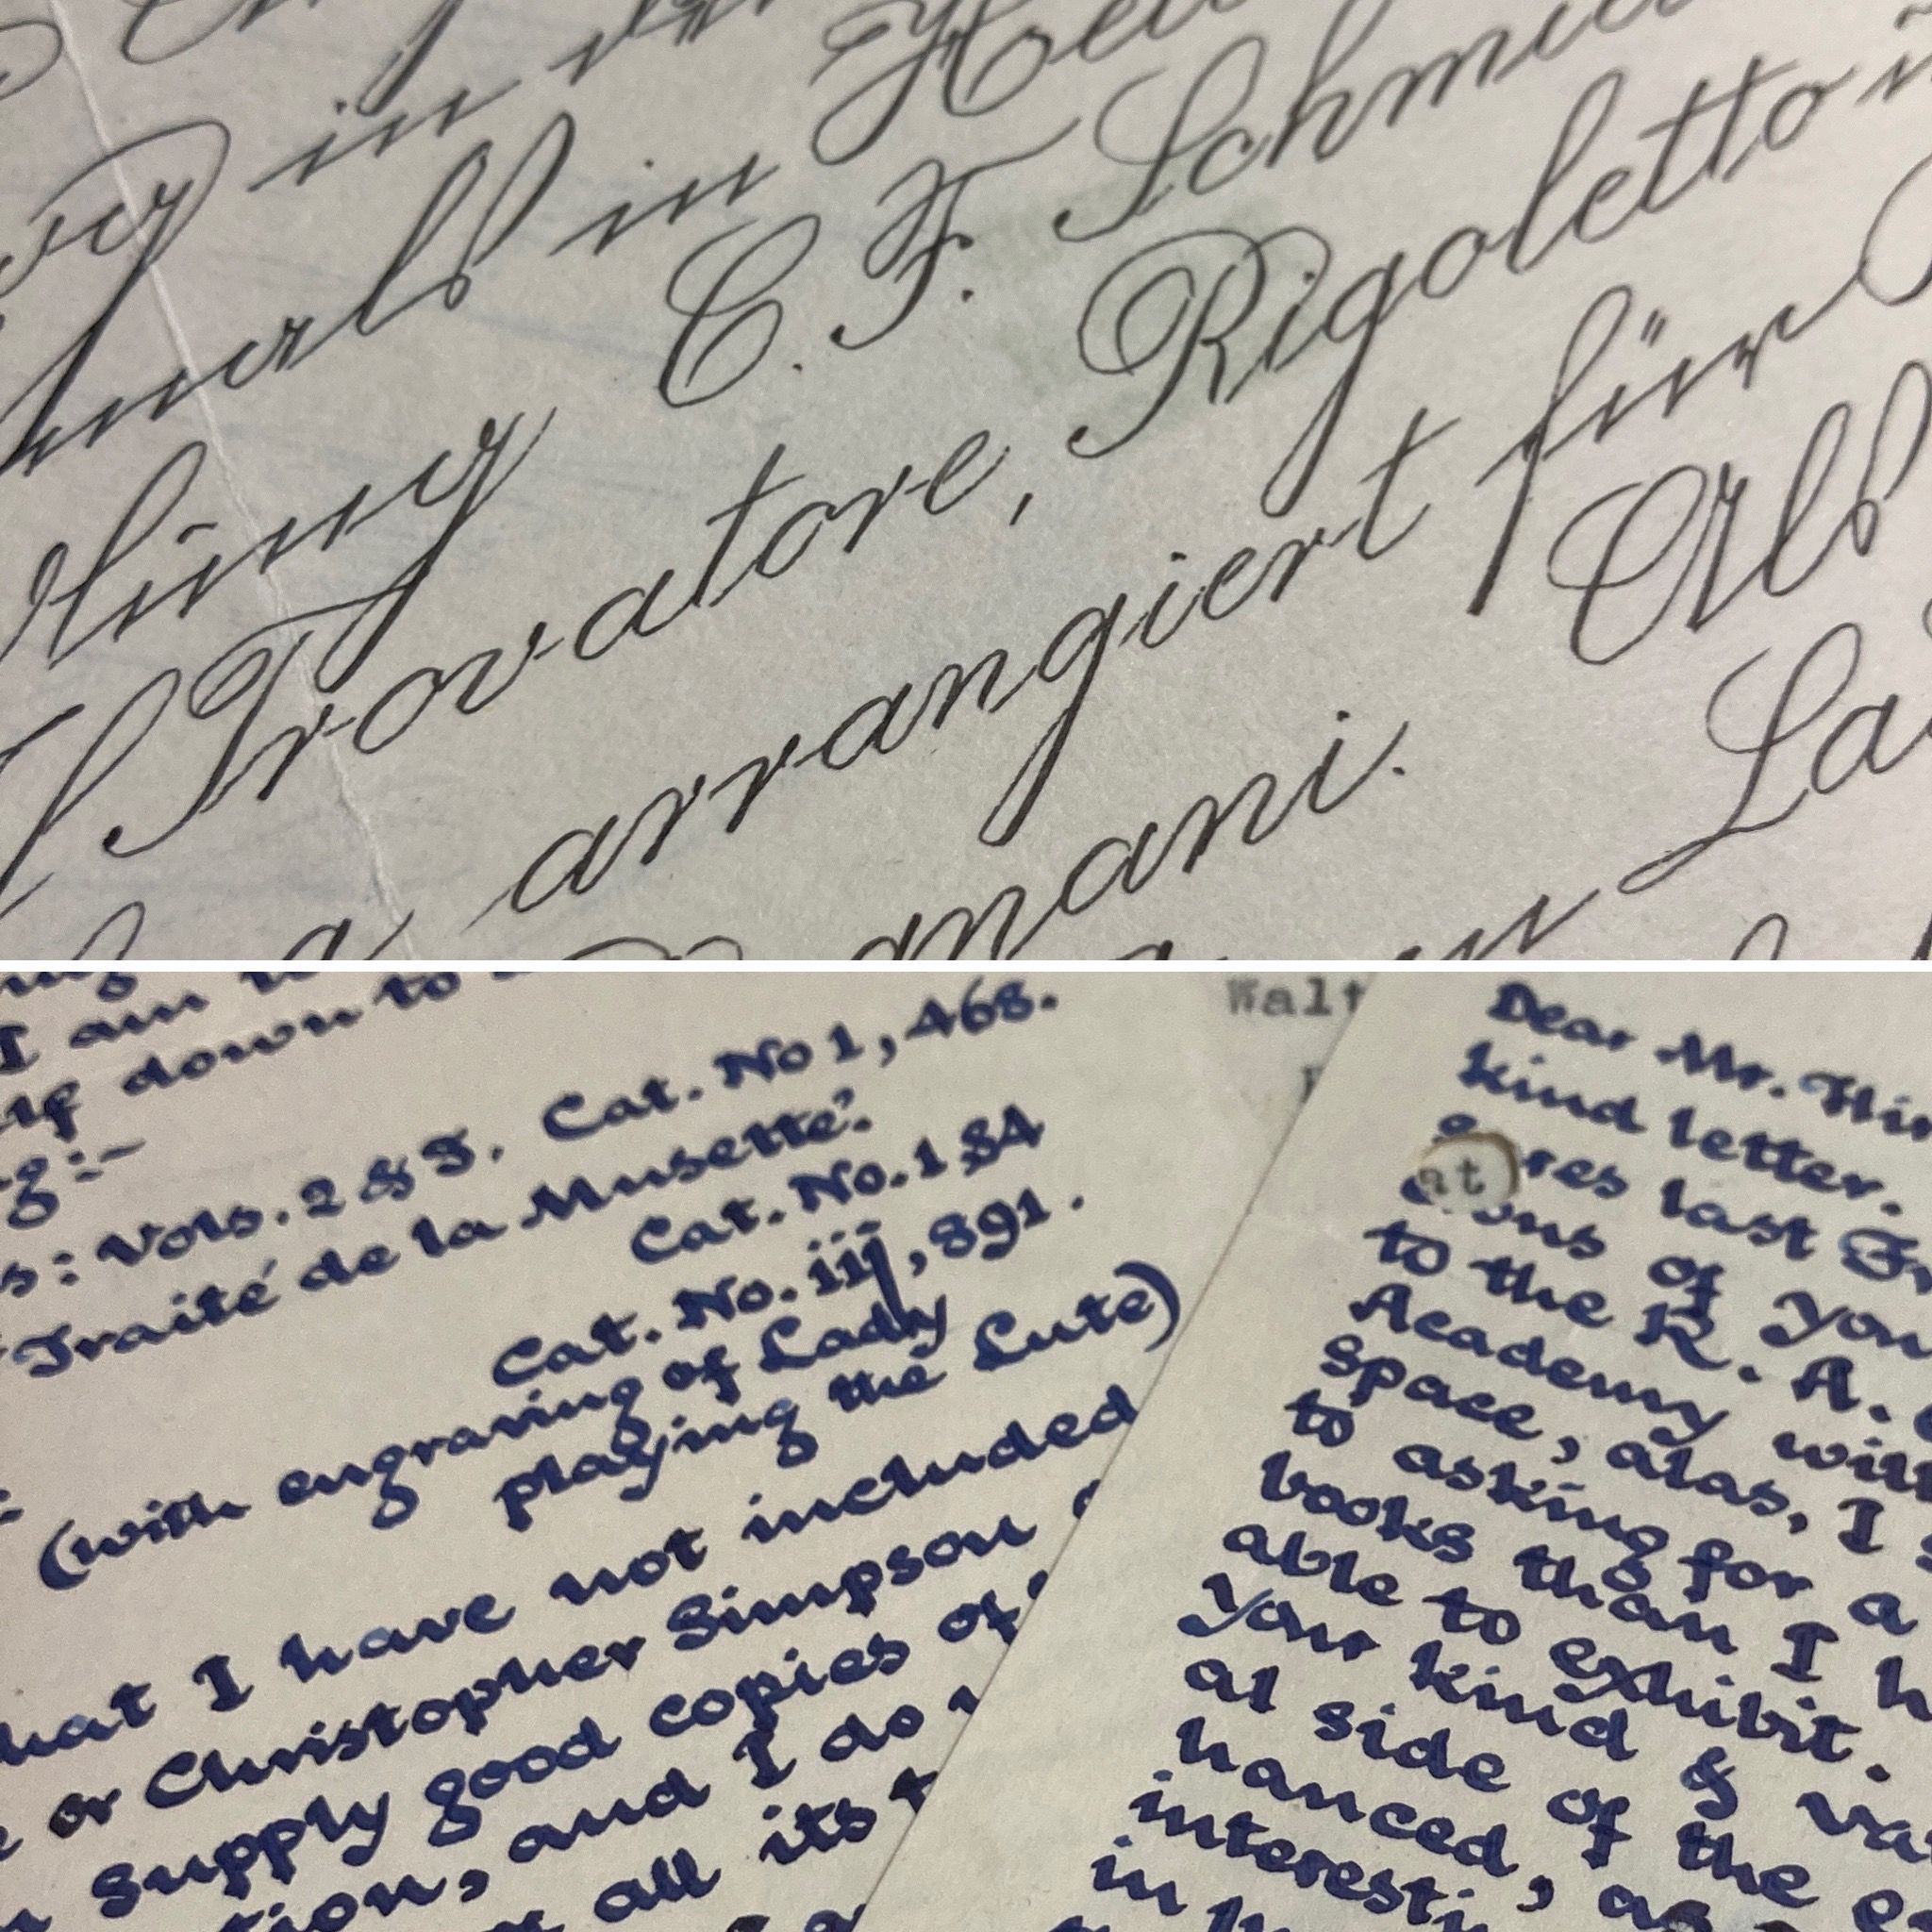 in
in
C. F. Schmi
Trovatore, Rigoletto
arrangiert für
mani.
La
I am
down to
Cat. No 1, 468.
s: Vols. 2 & 3.
Traité de la Musette".
Cat. No. 134
Cat. No. iij, 891.
(with engraving of Lady
playing the Lute)
hat I have not included
or Christopher Simpson
supply good copies of
tion, and I do
all its
Walt
Dear Mr. Hin
kind letter.
res last Fr
at
ons of you
to the R. A.
Academy will
space, alas, I s
to asking for a
books than I h
able to exhibit.
Your kind & va
al side of the e
hanced, as
interesti
in